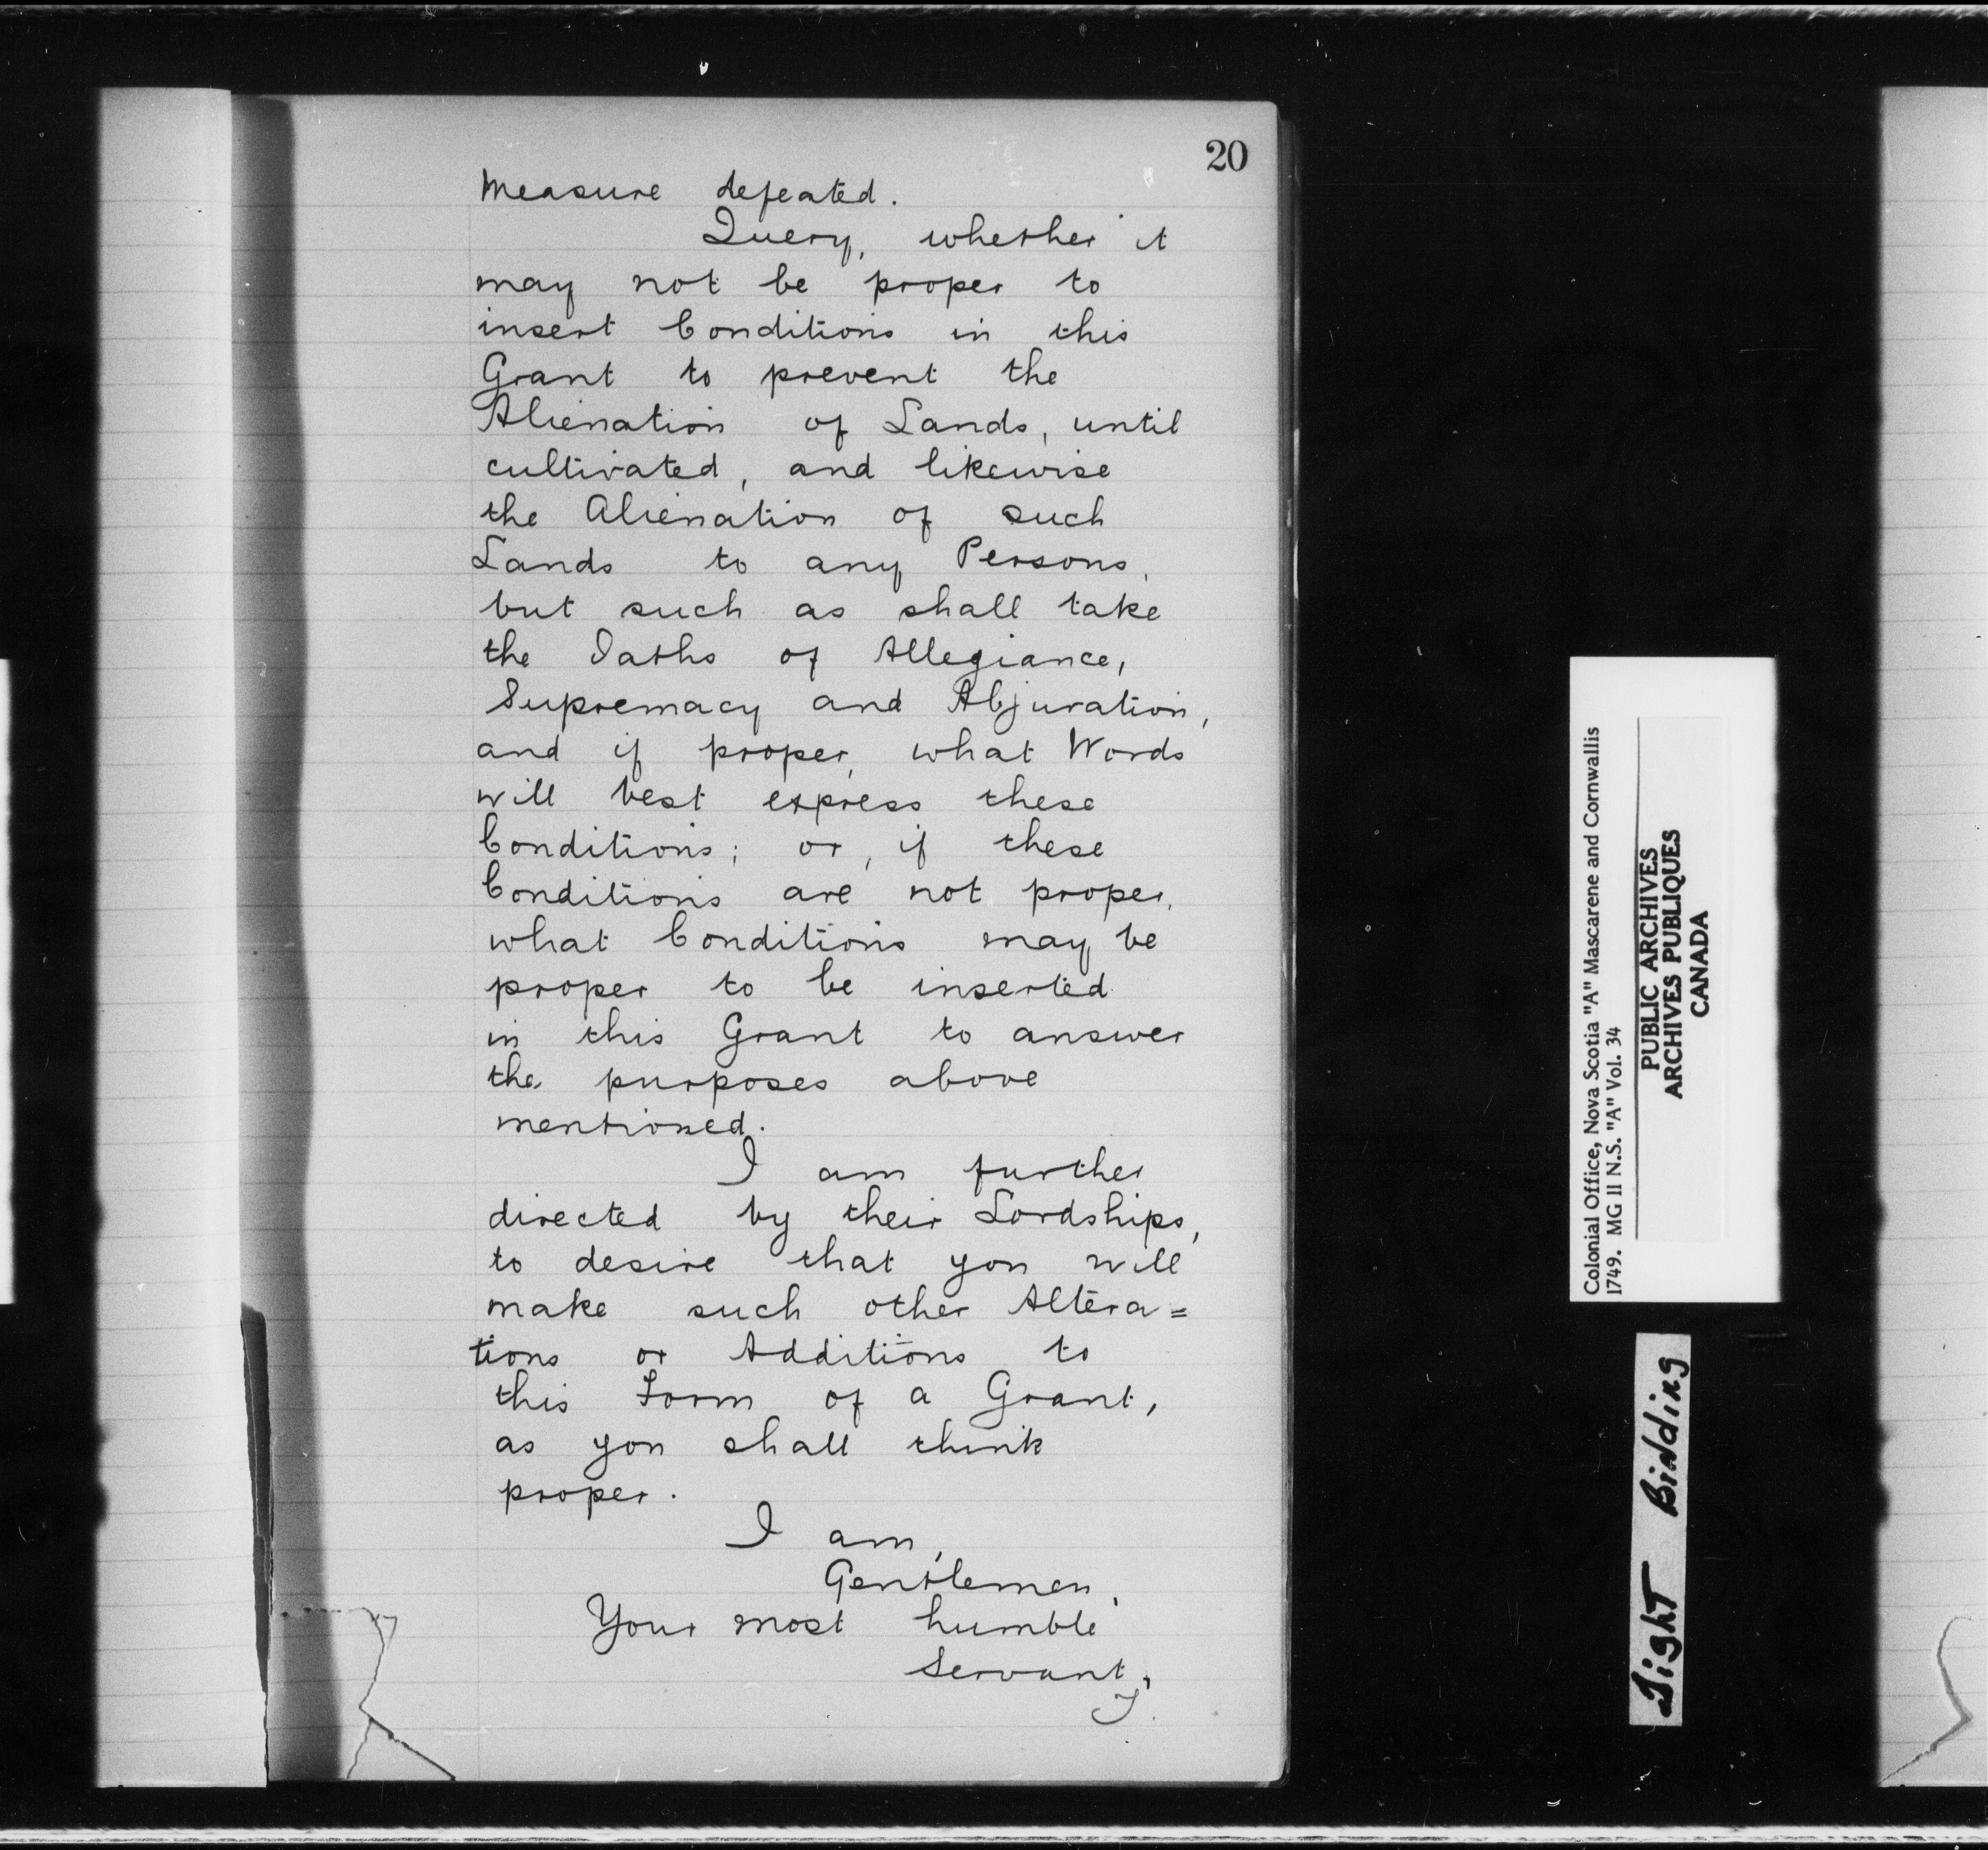 20
Measure defeated.
Query, whether it
may not be proper to
insert Conditions in this
Grant to prevent the
Alienation of Lands, until
cultivated, and likewise
the Alienation of such
Lands to any Persons,
but such as shall take
the Oaths of Allegiance,
Supremacy and Abjuration,
and if proper, what Words
will best express these
Conditions; or, if these
Conditions are not proper,
what Conditions may be
proper to be inserted
in this Grant to answer
the purposes above
mentioned.
I am further
directed by their Lordships,
to desire that you will
make such other Altera=
tions or Additions to
this Form of a Grant,
as you shall think
proper.
I am,
Gentlemen,
Your most humble
Servant,
T.
Colonial Office, Nova Scotia "A" Mascarene and Cornwallis
1749. MG 11 N.S. "A" Vol. 34
PUBLIC ARCHIVES
ARCHIVES PUBLIQUES
CANADA
Tight Binding